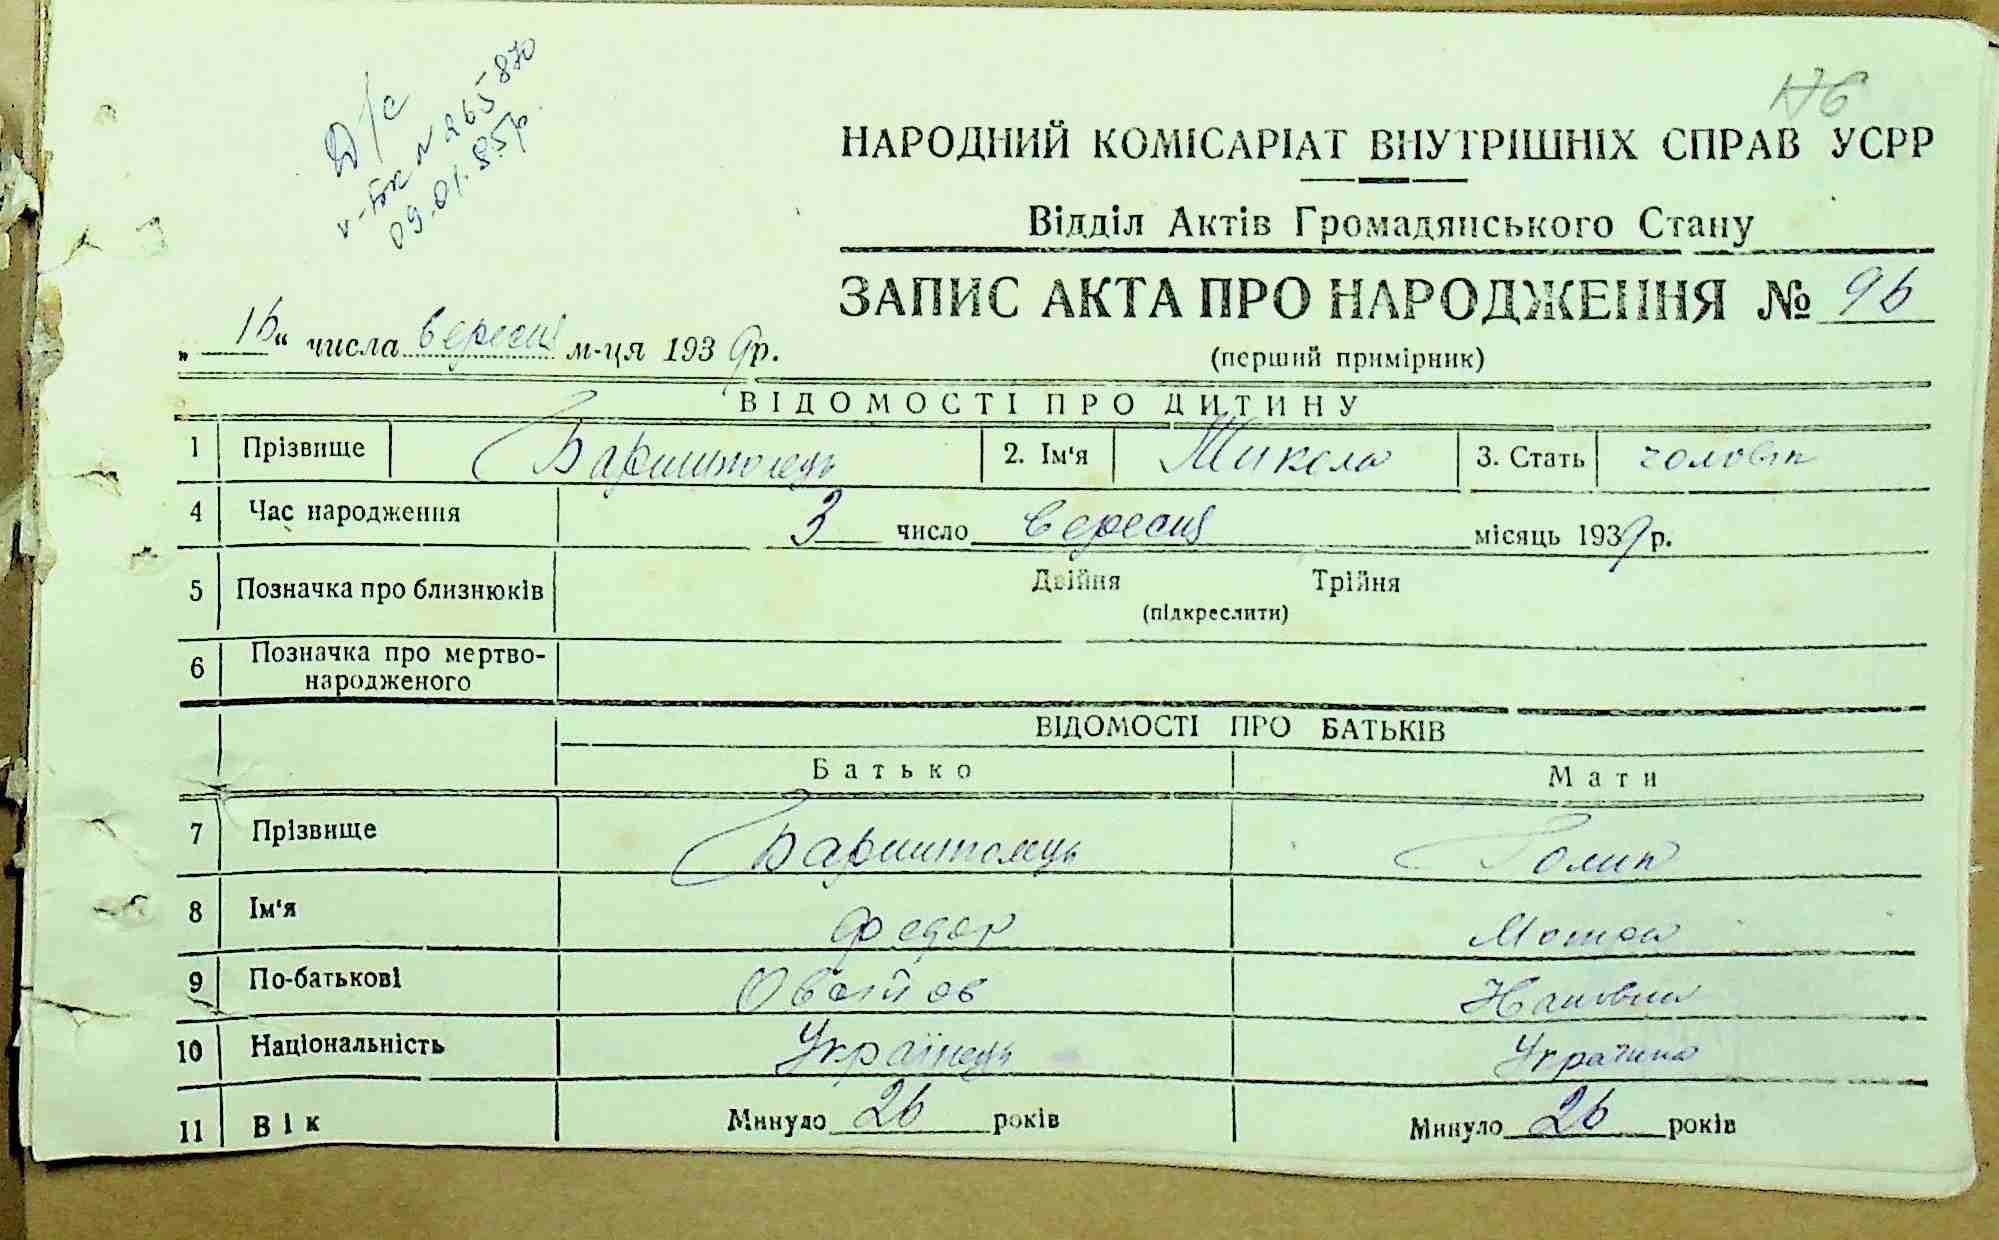 Д/с
09.01.85р.
176
НАРОДНИЙ КОМІСАРІАТ ВНУТРІШНІХ СПРАВ УСРР
Відділ Актів Громадянського Стану
ЗАПИС АКТА ПРО НАРОДЖЕННЯ № 96
„16“ числа вересня м-ця 1939р.
(перший примірник)
ВІДОМОСТІ ПРО ДИТИНУ
1 Прізвище Баришполець 2. Ім'я Микола 3. Стать чоловік
4 Час народження 3 число вересня місяць 1939р.
5 Позначка про близнюків Двійня Трійня
(підкреслити)
6 Позначка про мертво-
народженого
ВІДОМОСТІ ПРО БАТЬКІВ
Батько Мати
7 Прізвище Баришполець Голик
8 Ім'я Федор Мотря
9 По-батькові
10 Національність Українець Українка
11 Вік Минуло 26 років Минуло 26 років